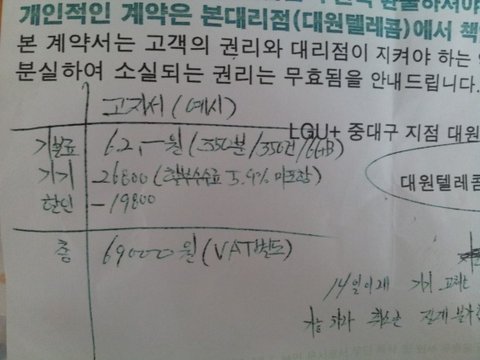 개인적인 계약은 본대리점(대원텔레콤)에서 책
본 계약서는 고객의 권리와 대리점이 지켜야 하는
분실하여 소실되는 권리는 무효됨을 안내드립니다.
고지서 (예시)
LGU+ 중대구 지점 대원
기본료 62,―원 (350분/350건/6GB)
기기 26800 (할부수수료 5.9% 미포함)
대원텔레콤
할인 -19800
총 69000원 (VAT별도)
14일 이내 기기